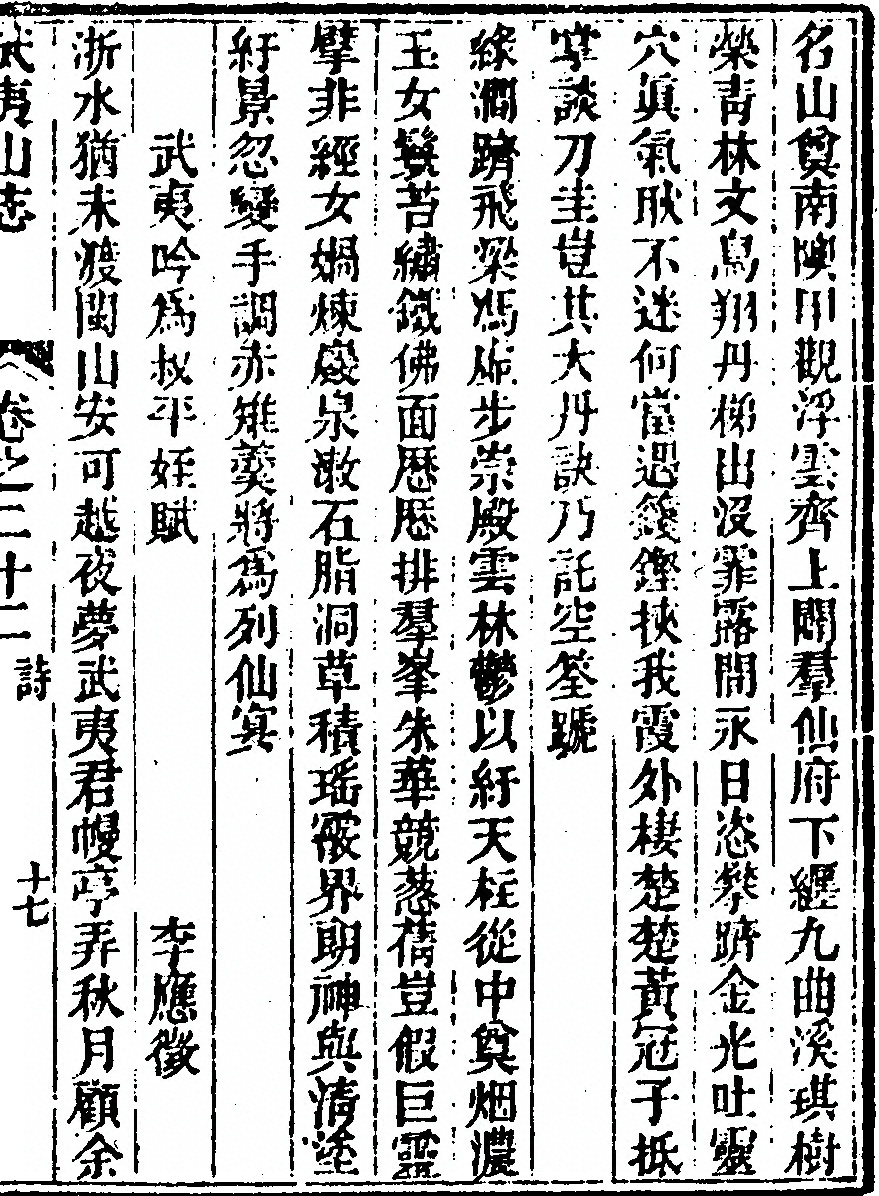 名山奠南陬川觀浮雲齊上闢羣仙府下纒九曲溪琪樹
榮靑林文鳥翔丹梯出沒霏露間永日恣攀躋金光吐靈
穴真氣耿不迷何當遇籛鏗挾我霞外棲楚楚黃冠子抵
掌談刀圭豈其大丹訣乃託空筌蹏
緣澗躋飛梁馮虛步崇殿雲林鬱以紆天柱從中奠烟濃
玉女鬟苔繡鐵佛面歷歷排羣峯朱華競葱蒨豈假巨靈
擘非經女媧煉巖泉漱石脂洞草積瑤霰界朗神與清塗
紆景忽變手調赤雉羹將爲列仙宴
武夷吟爲叔平姪賦 李應徵
浙水猶未渡閩山安可越夜夢武夷君幔亭弄秋月顧余
武夷山志 卷之二十二 詩 十七